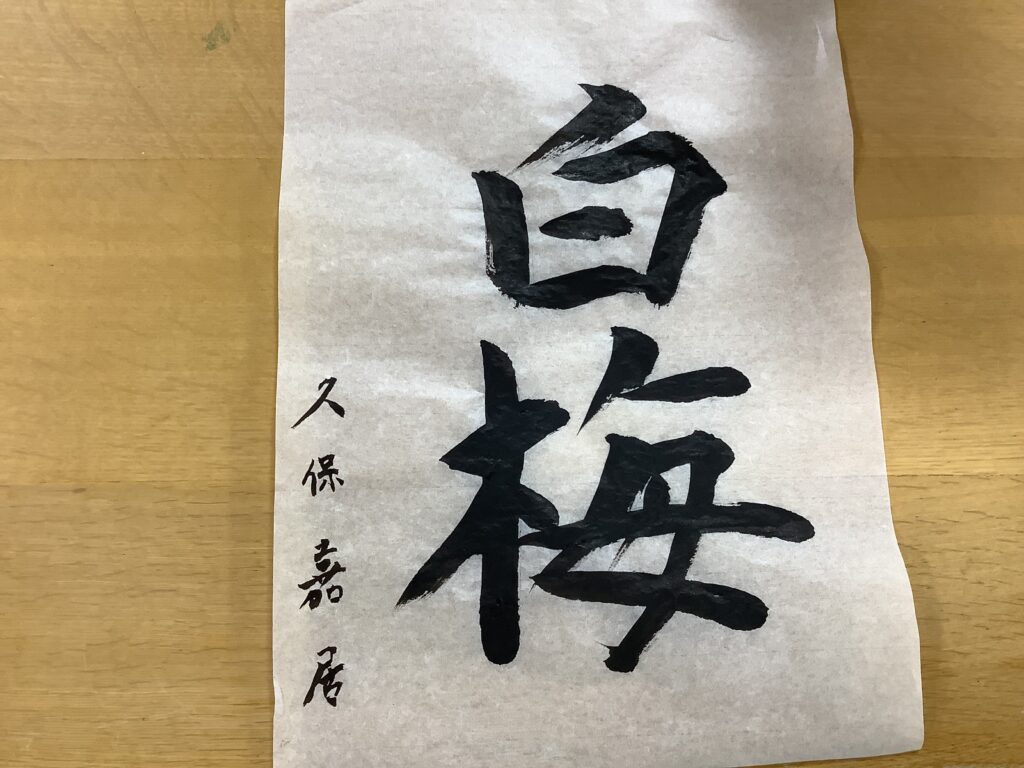 白梅
久保嘉居